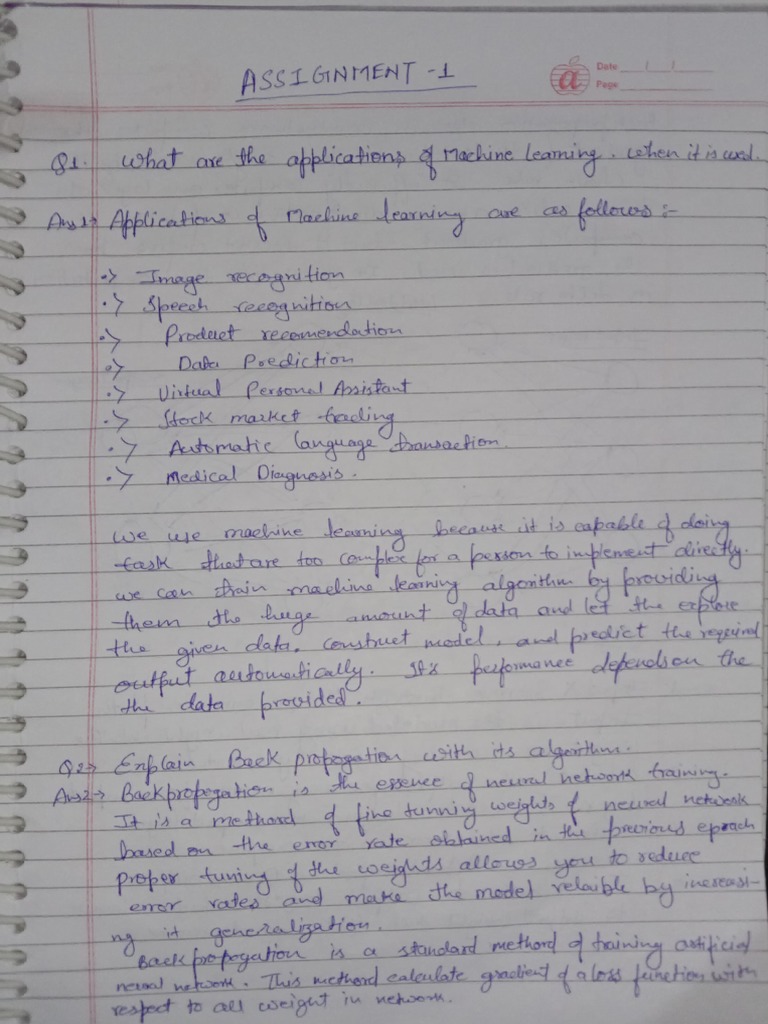 ASSIGNMENT -1
Date / /
Page
Q1. What are the applications of Machine learning. When it is used.
Ans1→ Applications of Machine learning are as follows :-
•> Image recognition
•> Speech recognition
•> Product recomendation
•> Data Prediction
•> Virtual Personal Assistant
•> Stock market trading
•> Automatic language transaction
•> Medical Diagnosis.
We use machine learning because it is capable of doing
task that are too complex for a person to implement directly.
we can train machine learning algorithm by providing
them the huge amount of data and let the explore
the given data, construct model, and predict the required
output automatically. It's performance depends on the
the data provided.
Q2→ Explain Back propogation with its algorithm.
Ans2→ Backpropegation is the essence of neural network training.
It is a methord of fine tunning weights of neural network
based on the error rate obtained in the previous eproach
proper tuning of the weights allows you to reduce
error rates and make the model relaible by increasi-
ng it generalization.
Backpropegation is a standard methord of training artificial
neural network. This methord calculate gradient of a loss function with
respect to all weight in network.